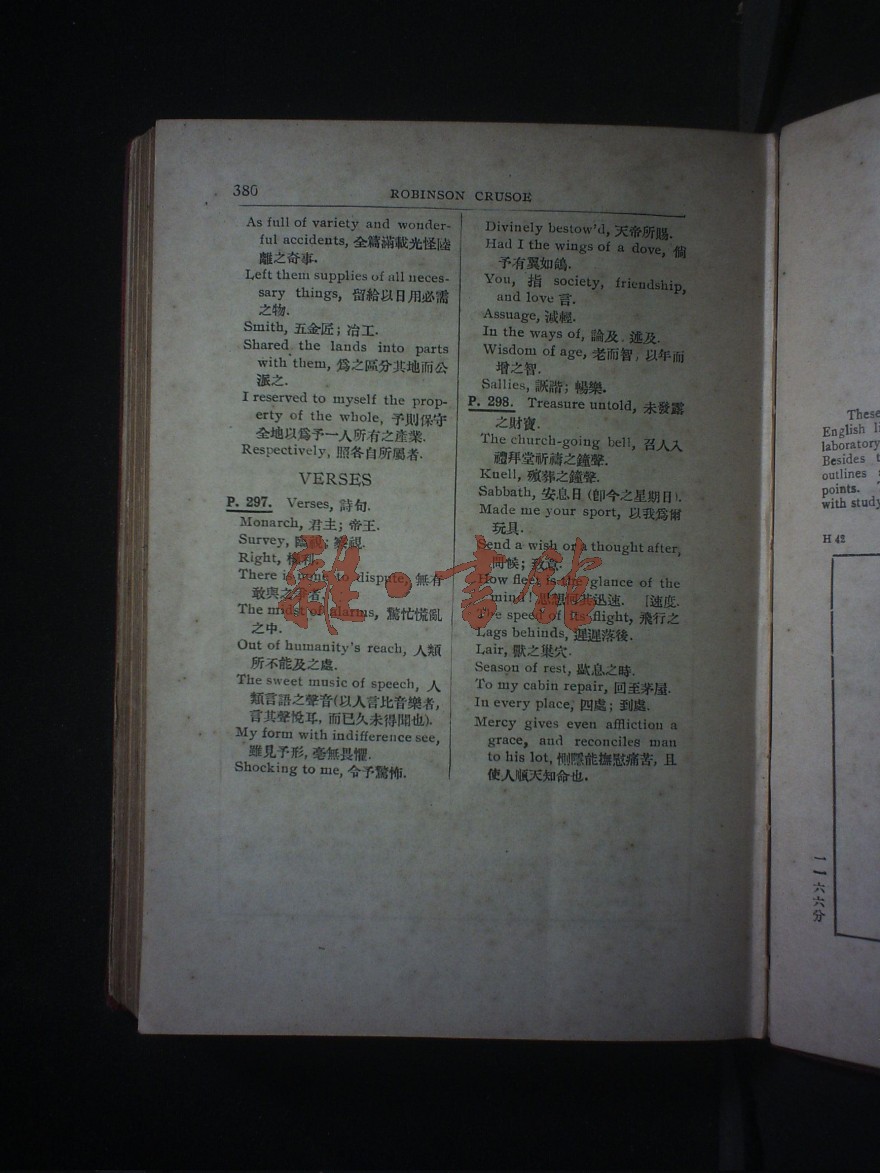 380
ROBINSON CRUSOE
As full of variety and wonder-
ful accidents, 全篇滿載光怪陸
離之奇事.
Left them supplies of all neces-
sary things, 留給以日用必需
之物.
Smith, 五金匠; 冶工.
Shared the lands into parts
with them, 爲之區分其地而公
派之.
I reserved to myself the prop-
erty of the whole, 予則保守
全地以爲予一人所有之產業.
Respectively, 照各自所屬者.
VERSES
P. 297. Verses, 詩句.
Monarch, 君主; 帝王.
Survey, 臨視; 察視.
Right, 權利.
There is none to dispute, 無有
敢與之爭者.
The midst of alarms, 驚忙慌亂
之中.
Out of humanity's reach, 人類
所不能及之處.
The sweet music of speech, 人
類言語之聲音(以人言比音樂者,
言其聲悅耳, 而已久未得聞也).
My form with indifference see,
雖見予形, 毫無畏懼.
Shocking to me, 令予驚怖.
Divinely bestow'd, 天帝所賜.
Had I the wings of a dove, 倘
予有翼如鴿.
You, 指 society, friendship,
and love 言.
Assuage, 減輕.
In the ways of, 論及, 述及.
Wisdom of age, 老而智, 以年而
增之智.
Sallies, 詼諧; 暢樂.
P. 298. Treasure untold, 未發露
之財寶.
The church-going bell, 召人入
禮拜堂祈禱之鐘聲.
Knell, 殯葬之鐘聲.
Sabbath, 安息日 (卽今之星期日).
Made me your sport, 以我爲爾
玩具.
Send a wish or a thought after,
問候; 致意.
How fleet is the glance of the
mind! 思想何其迅速. [速度.
The speed of its flight, 飛行之
Lags behinds, 遲遲落後.
Lair, 獸之巢穴.
Season of rest, 歇息之時.
To my cabin repair, 回至茅屋.
In every place, 四處; 到處.
Mercy gives even affliction a
grace, and reconciles man
to his lot, 惻隱能撫慰痛苦, 且
使人順天知命也.
雜·書館
These
English li
laboratory
Besides t
outlines
points.
with study
H 42
一一六六分